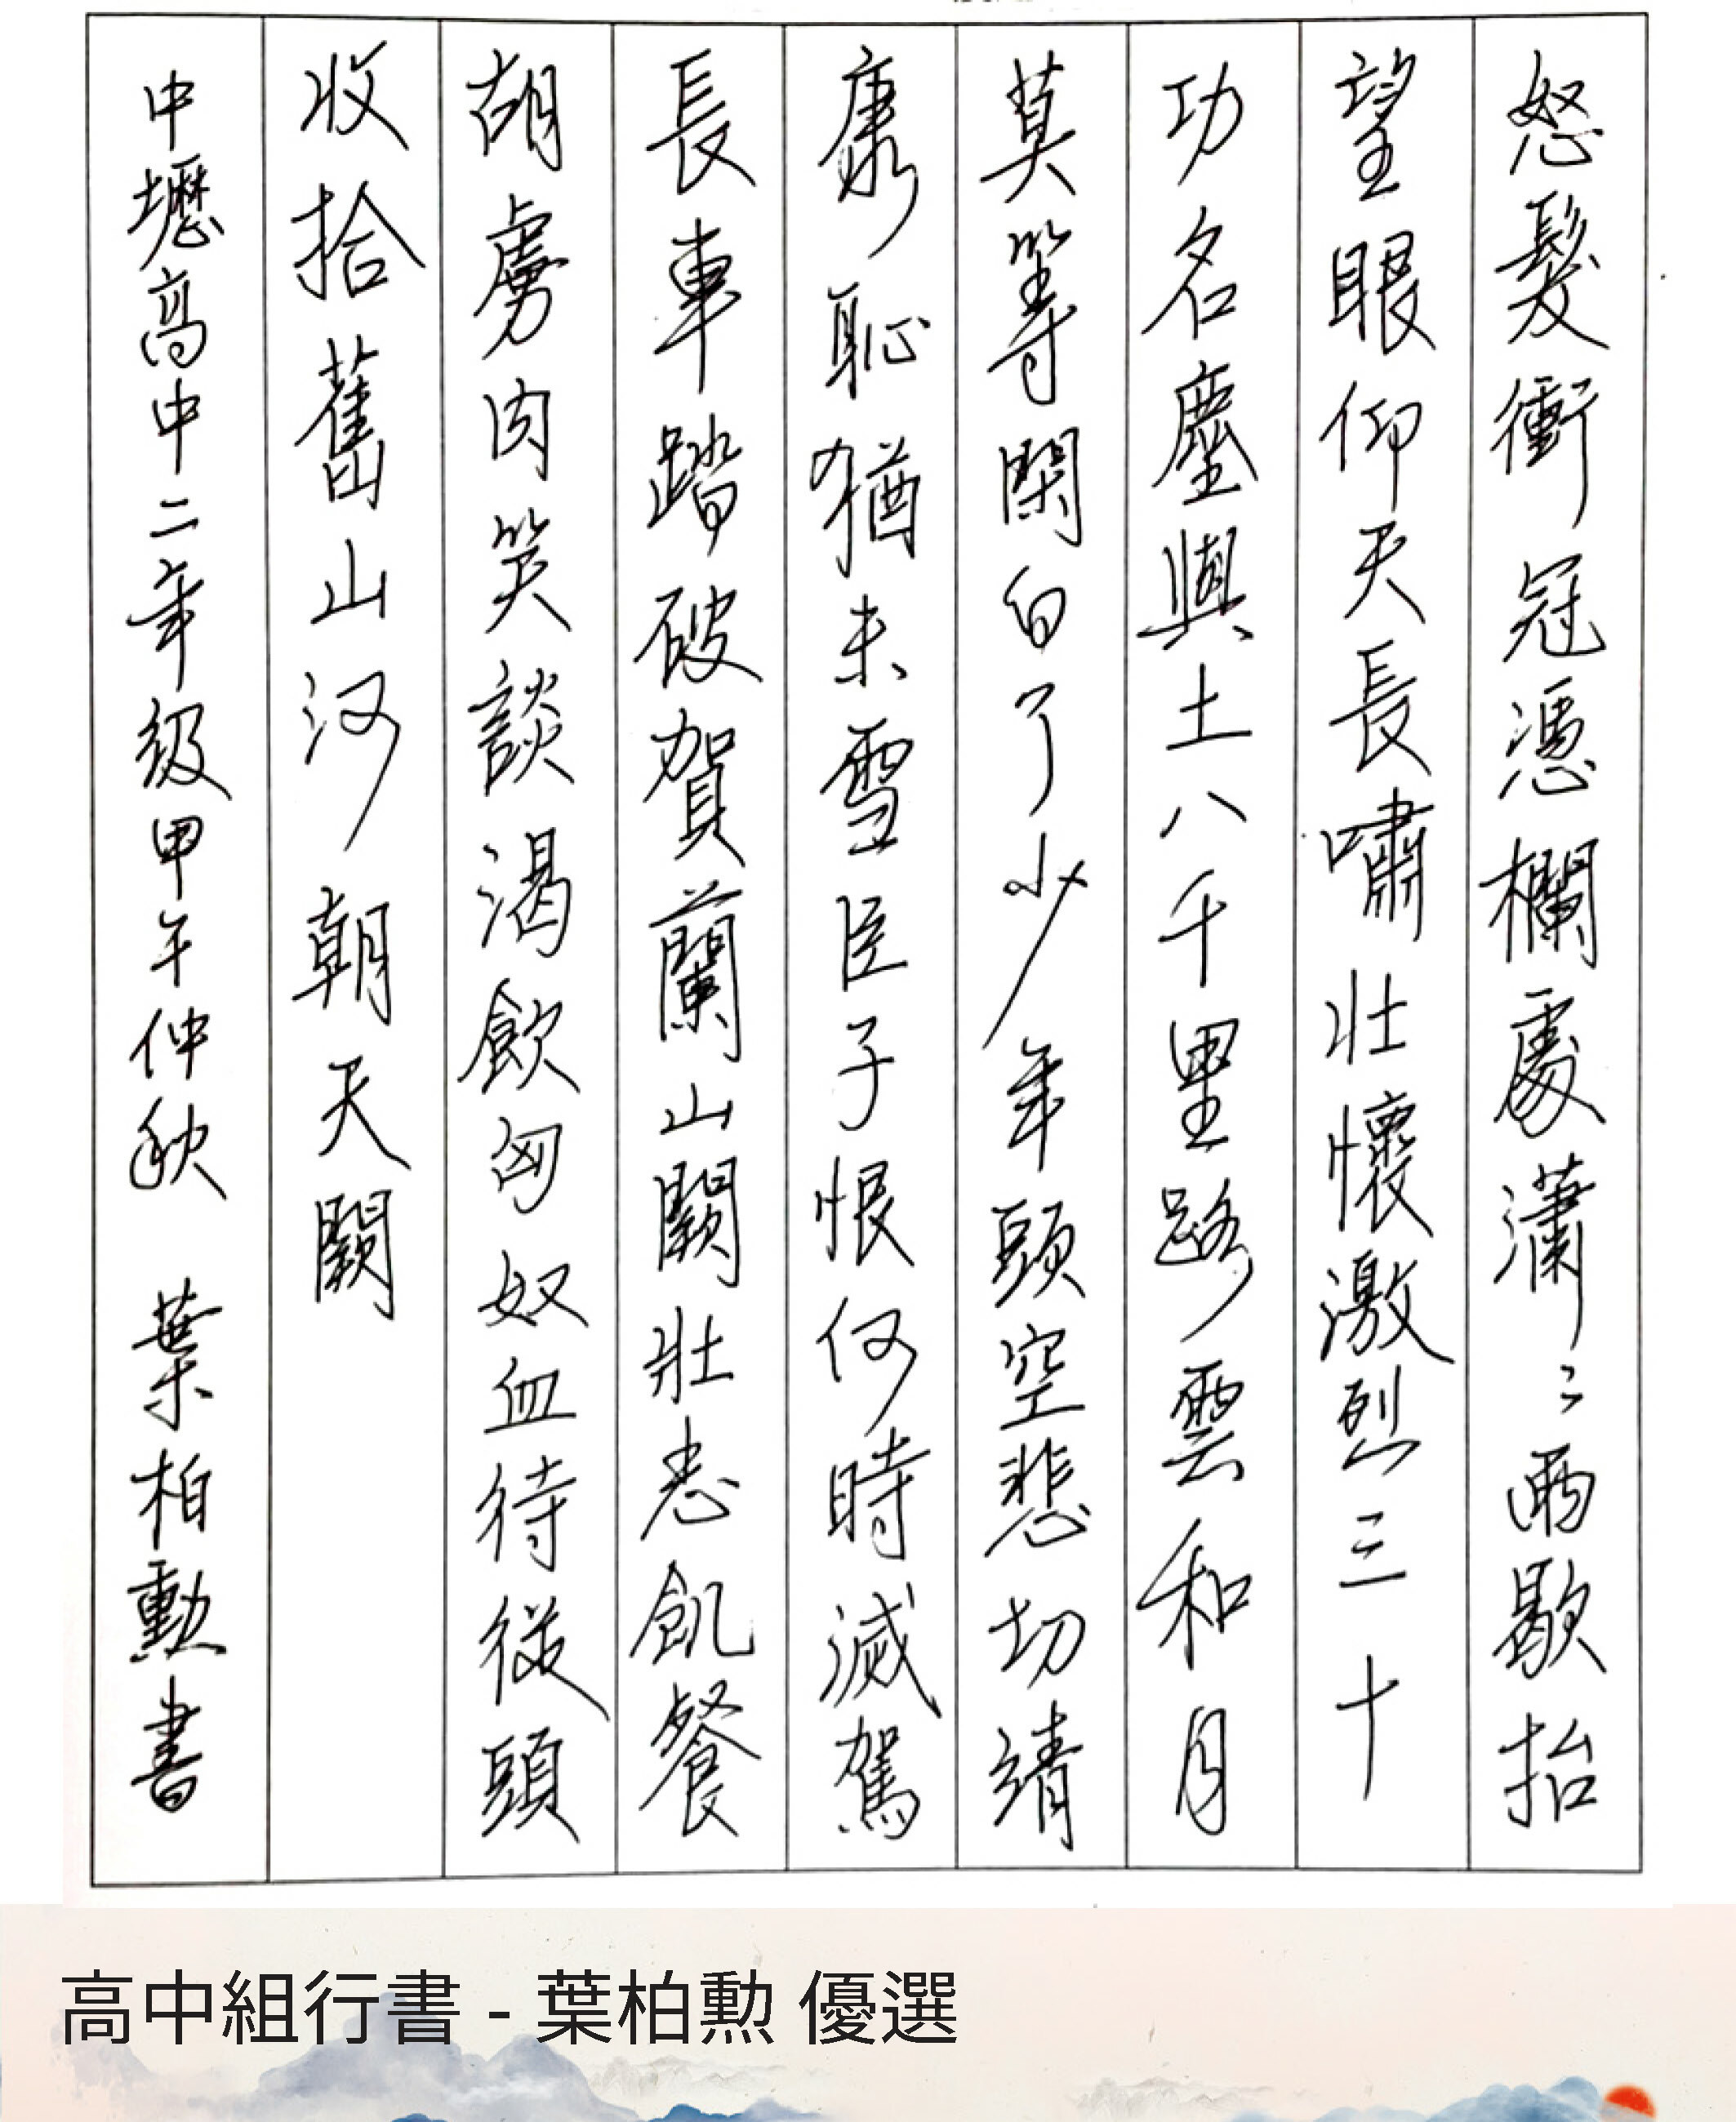 怒髮衝冠憑欄處瀟〻雨歇抬
望眼仰天長嘯壯懷激烈三十
功名塵與土八千里路雲和月
莫等閑白了少年頭空悲切靖
康恥猶未雪臣子恨何時滅駕
長車踏破賀蘭山闕壯志飢餐
胡虜肉笑談渴飲匈奴血待從頭
收拾舊山河朝天闕
中壢高中二年級甲午仲秋 葉柏勳書
高中組行書 - 葉柏勳 優選